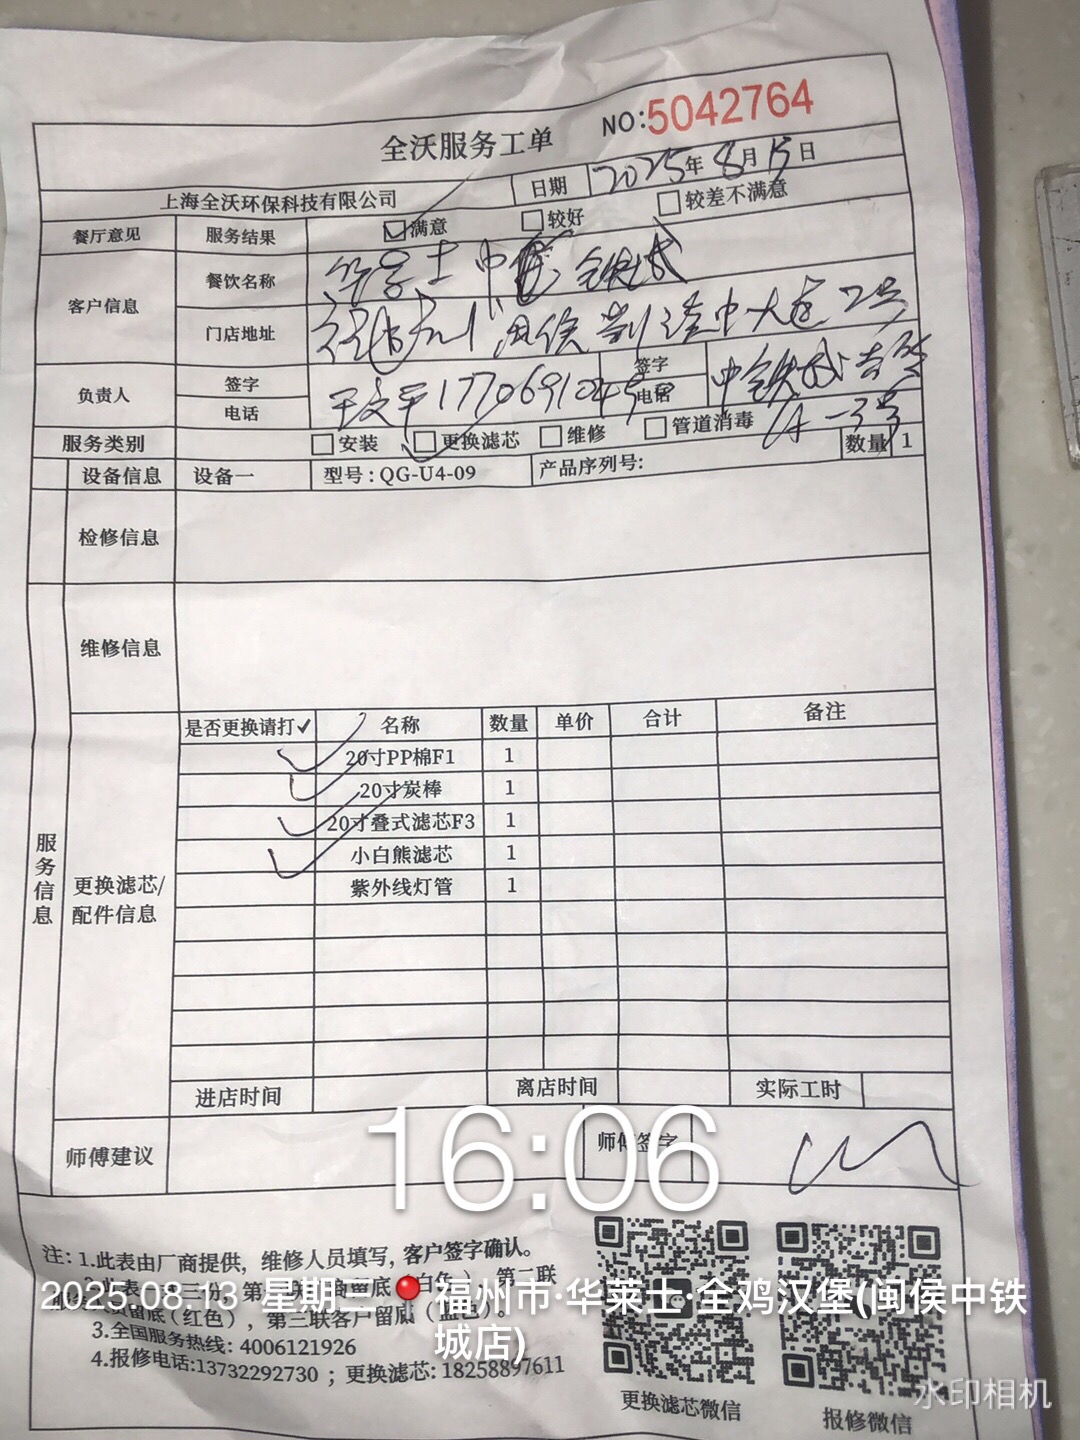 NO:5042764
全沃服务工单
上海全沃环保科技有限公司 日期 2025年8月15日
餐厅意见 服务结果 满意 较好 较差不满意
客户信息 餐饮名称
门店地址
负责人 签字 签字
电话 电话
服务类别 安装 更换滤芯 维修 管道消毒 数量 1
设备信息 设备一 型号:QG-U4-09 产品序列号:
检修信息
维修信息
服务信息
更换滤芯/
配件信息
是否更换请打✓ 名称 数量 单价 合计 备注
20寸PP棉F1 1
20寸炭棒 1
20寸叠式滤芯F3 1
小白熊滤芯 1
紫外线灯管 1
进店时间 离店时间 实际工时
师傅建议 师傅签字
16:06
注: 1.此表由厂商提供，维修人员填写, 客户签字确认。
2025.08.13 星期三 福州市·华莱士·全鸡汉堡(闽侯中铁
城店)
留底(红色)，第三联客户留底(蓝色)。
3.全国服务热线: 4006121926
4.报修电话:13732292730 ; 更换滤芯: 18258897611
更换滤芯微信 报修微信
水印相机